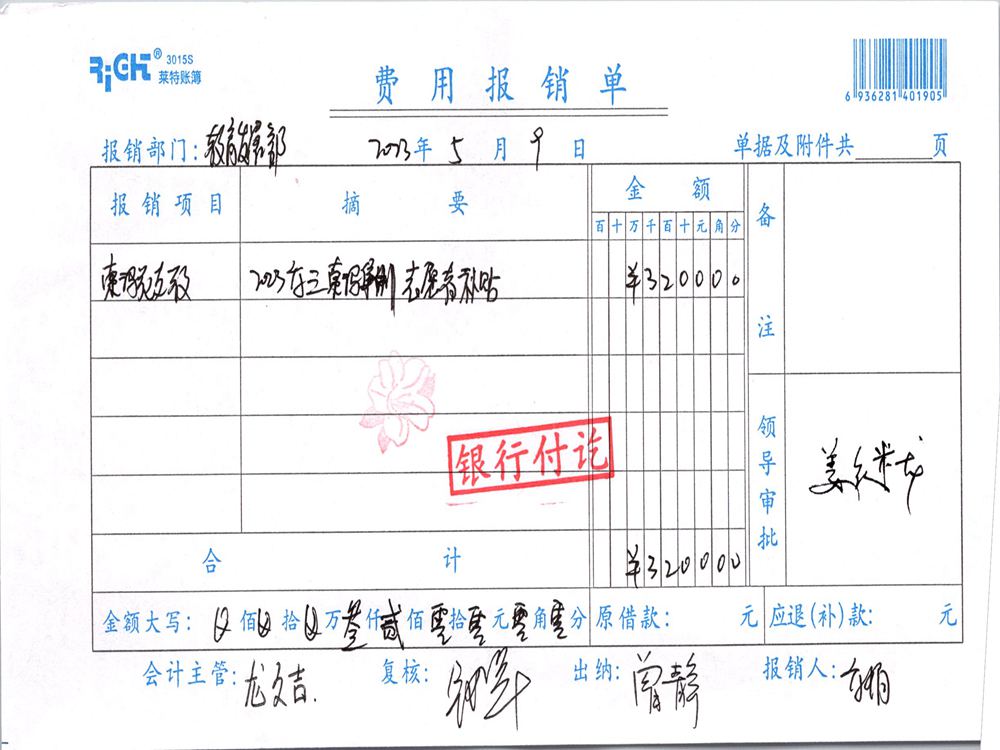 RiGHT® 3015S
莱特账簿
费用报销单
6 936281 401905
报销部门: 教育发展部 2023年 5月 9日 单据及附件共 页
报销项目 摘要 金额 备注
百十万千百十元角分
2023年三 志愿者补贴 ¥320000
银行付讫
领导审批 姜
合计 ¥320000
金额大写: 佰 拾 万叁仟贰佰零拾零元零角零分 原借款: 元 应退(补)款: 元
会计主管: 龙文吉. 复核: 出纳: 曾静 报销人: